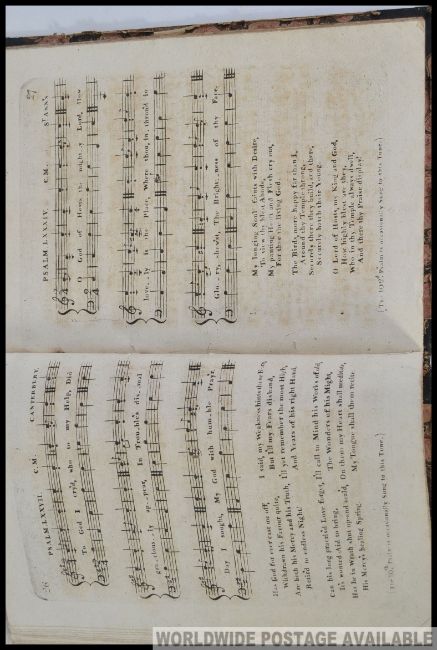 26
PSALM LXXVII. C.M. CANTERBURY.
To God I cry'd, who to my Help, Did
gracious--ly ap--pear, In Trou--ble's dis--mal
Day I sought, My God with hum--ble Pray'r.
Has God for ever cast me off,
Withdrawn his Favour quite,
Are both his Mercy and his Truth,
Retir'd to endless Night?
I said, my Weakness hints these
But I'll my Fears disband,
I'll yet remember the most High,
And Years of his right Hand.
Can his long practis'd Love forget,
It's wonted Aid to bring,
Has he in Wrath shut up and seal'd,
His Mercy's healing Spring.
I'll call to Mind his Works of old
The Wonders of his Might,
On them my Heart shall meditate,
My Tongue shall them recite.
Psalm is occasionally Sung to this Tune.)
27
PSALM LXXXIV. C.M. ST. ANN'S
O God of Hosts the migh--ty Lord, How
love--ly is the Place, Where thou, in--thron'd in
Glo--ry, shew'st, The Bright--ness of thy Face.
My longing Soul faints with Desire,
To view thy blest Abode,
My panting Heart and Flesh cry out,
For thee the living God.
The Birds more happy far than I,
Around thy Temple throng,
Securely there they build, and there,
Securely hatch their Young.
O Lord of Hosts, my King and God,
How highly blest are they,
Who in thy Temple always dwell,
And there thy Praise display!
Psalm is occasionally Sung to this Tune.)
WORLDWIDE POSTAGE AVAILABLE